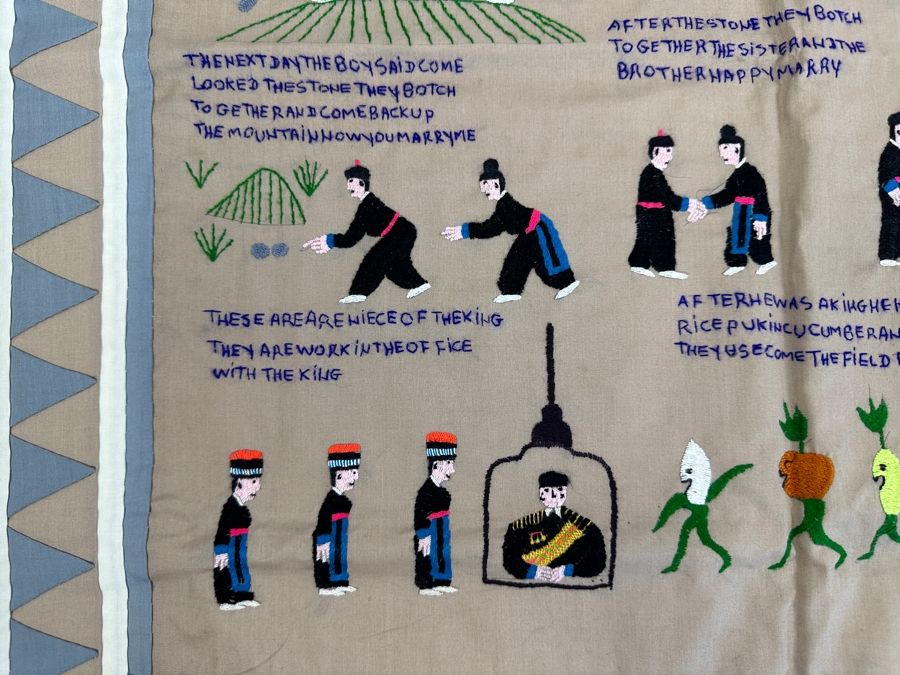 THENEXTDAYTHEBOYSAIDCOME
LOOKED THESTONE THEY BOTCH
TO GETHERANDCOMEBACKUP
THE MOUNTAINNOWYOUMARRYME
AFTERTHESTONE THEY BOTCH
TO GETHER THE SISTERANDTHE
BROTHERHAPPYMARRY
THESE AREARENIECE OF THEKING
THEY AREWORKINTHEOF FICE
WITH THE KING
AF TERHEWAS AKINGHE
RICEPUKINCUCUMBERAN
THEYUSECOMETHEFIELD